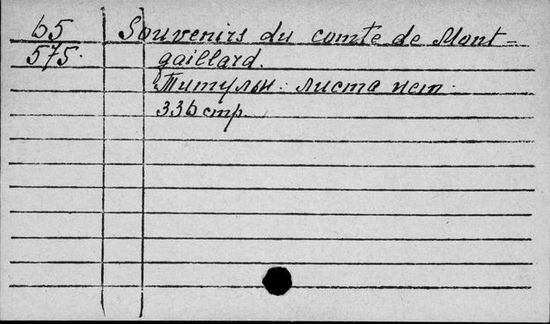 65 Souvenirs du comte de Mont-
575. gaillard.
Титульн. листа нет.
336 стр.